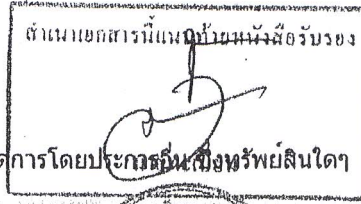 สำเนาเอกสารนี้แนบท้ายหนังสือรับรอง
การโดยประการอื่น ซึ่งทรัพย์สินใดๆ